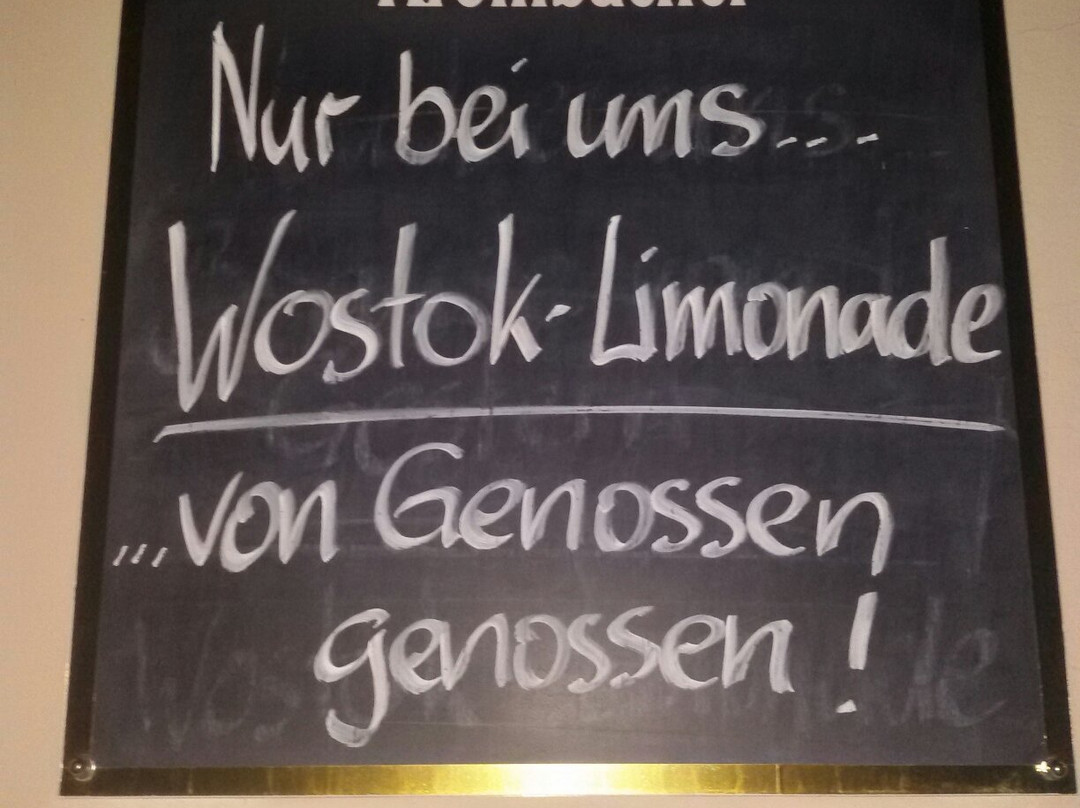 Krombacher
Nur bei uns...
Wostok-Limonade
...von Genossen
genossen!